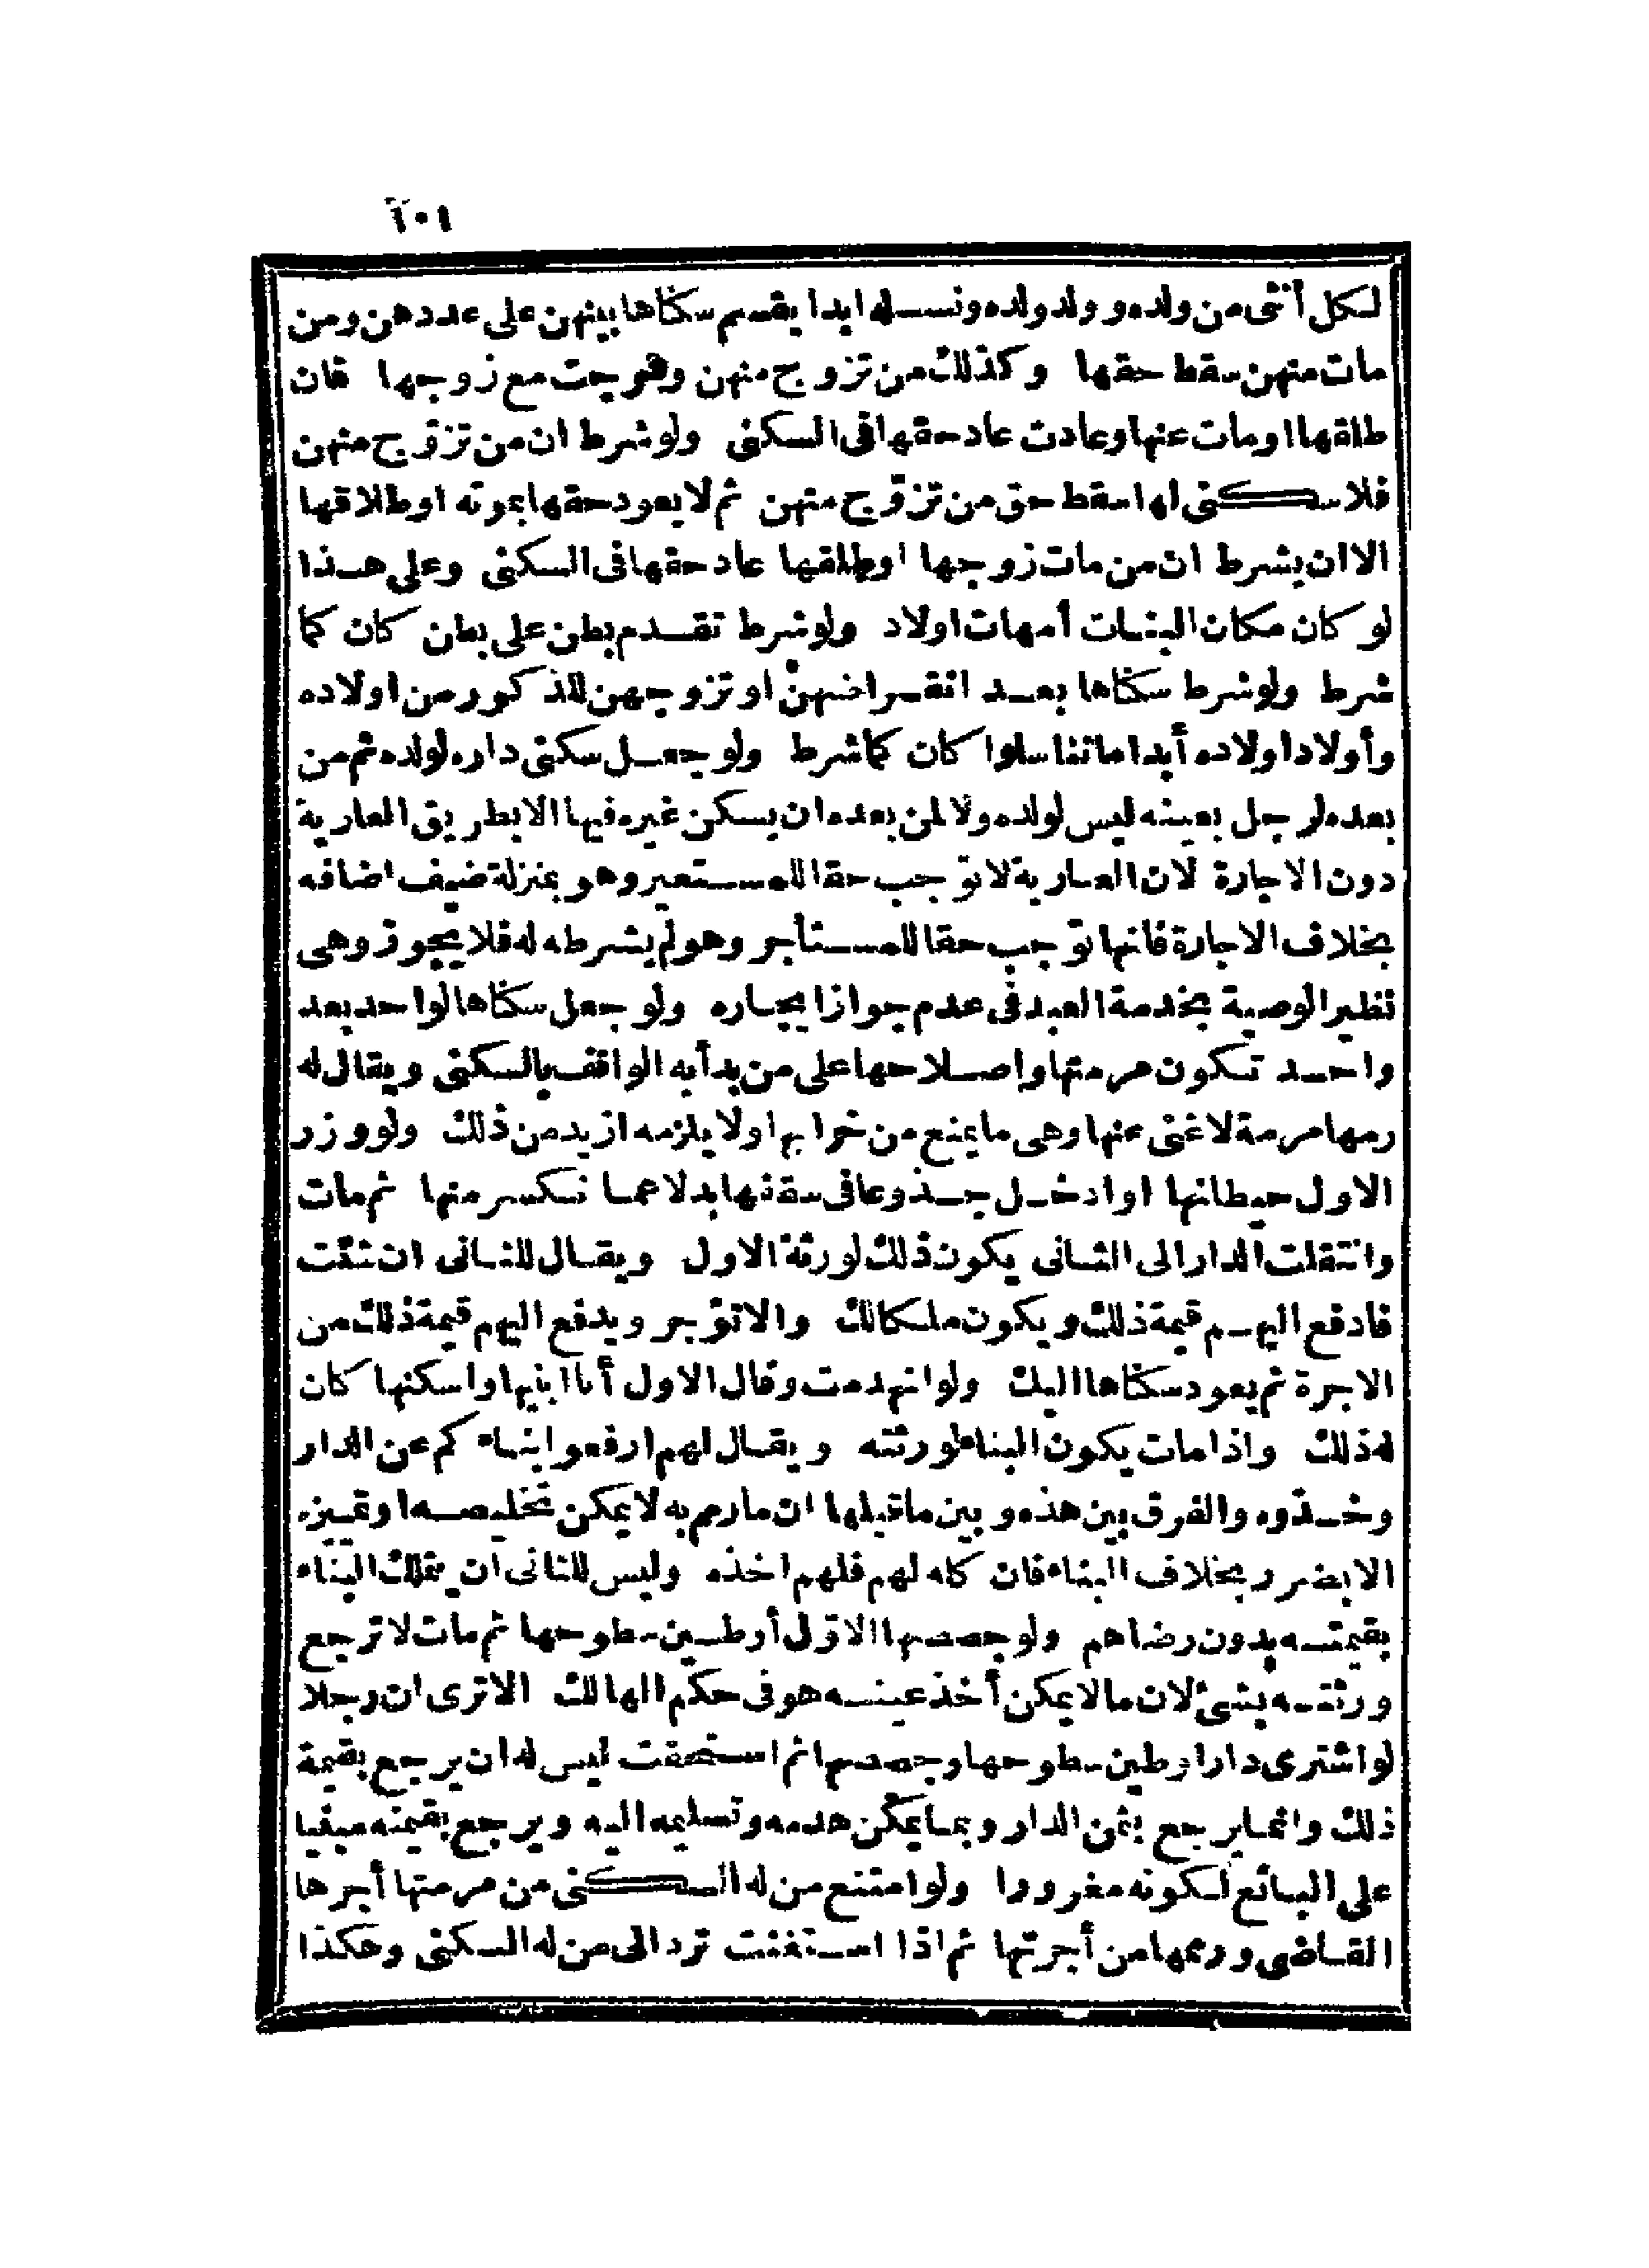 ١٠٦
لكل أنثى من ولده وولد ولده ونسله ابدا يقسم سكناها بينهن على عددهن ومن
مات منهن سقط حقها وكذلك من تزوج منهن وخرجت مع زوجها فان
طلقها او مات عنها وعادت عاد حقها فى السكنى ولو شرط ان من تزوّج منهن
فلا سكنى لها سقط حق من تزوّج منهن ثم لا يعود حقها بموته او طلاقها
الا ان يشرط ان من مات زوجها او طلقها عاد حقها فى السكنى وعلى هذا
لو كان مكان البنات أمهات اولاد ولو شرط تقدم بطن على بطن كان كما
شرط ولو شرط سكناها بعد انقراضهنّ او تزوجهن للذكور من اولاده
وأولاد اولاده أبدا ما تناسلوا كان كما شرط ولو جعل سكنى داره لولده ثم من
بعده لرجل بعينه ليس لولده ولا لمن بعده ان يسكن غيره فيها الا بطريق العارية
دون الاجارة لان العارية لا توجب حقا للمستعير وهو بمنزلة ضيف اضافه
بخلاف الاجارة فانها توجب حقا للمستأجر وهو لم يشرطه له فلا يجوز وهى
نظير الوصية بخدمة العبد فى عدم جواز ايجاره ولو جعل سكناها لواحد بعد
واحد تكون مرمتها واصلاحها على من بدأ به الواقف بالسكنى ويقال له
رمها مرمة لا غنى عنها وهى ما يمنع من خرابها ولا يلزمه ازيد من ذلك ولو وزر
الاول حيطانها او ادخل جذوعا فى سقفها بدلا عما تكسر منها ثم مات
وانتقلت الدار الى الثانى يكون ذلك لورثة الاول ويقال للثانى ان شئت
فادفع اليهم قيمة ذلك ويكون ملكا لك والا تؤجر ويدفع اليهم قيمة ذلك من
الاجرة ثم يعود سكناها اليك ولو انهدمت وقال الاول أنا ابنيها واسكنها كان
له ذلك واذا مات يكون البناء لورثته ويقال لهم ارفعوا بناءكم عن الدار
وخذوه والفرق بين هذه وبين ما قبلها ان ما رم به لا يمكن تخليصه او تميزه
الا بضرر بخلاف البناء فان كله لهم فلهم اخذه وليس للثانى ان يتملك البناء
بقيمته بدون رضاهم ولو جصصها الاوّل أو طين سطوحها ثم مات لا ترجع
ورثته بشئ لان ما لا يمكن أخذ عينه هو فى حكم الهالك الا ترى ان رجلا
لو اشترى دارا وطين سطوحها وجصصها ثم استحقت ليس له ان يرجع بقيمة
ذلك وانما يرجع بثمن الدار وبما يمكن هدمه وتسليمه اليه ويرجع بقيمته مبنيا
على البائع لكونه مغرورا ولو امتنع من له السكنى من مرمتها أجرها
القاضى ورمها من أجرتها ثم اذا استغنت ترد الى من له السكنى وهكذا